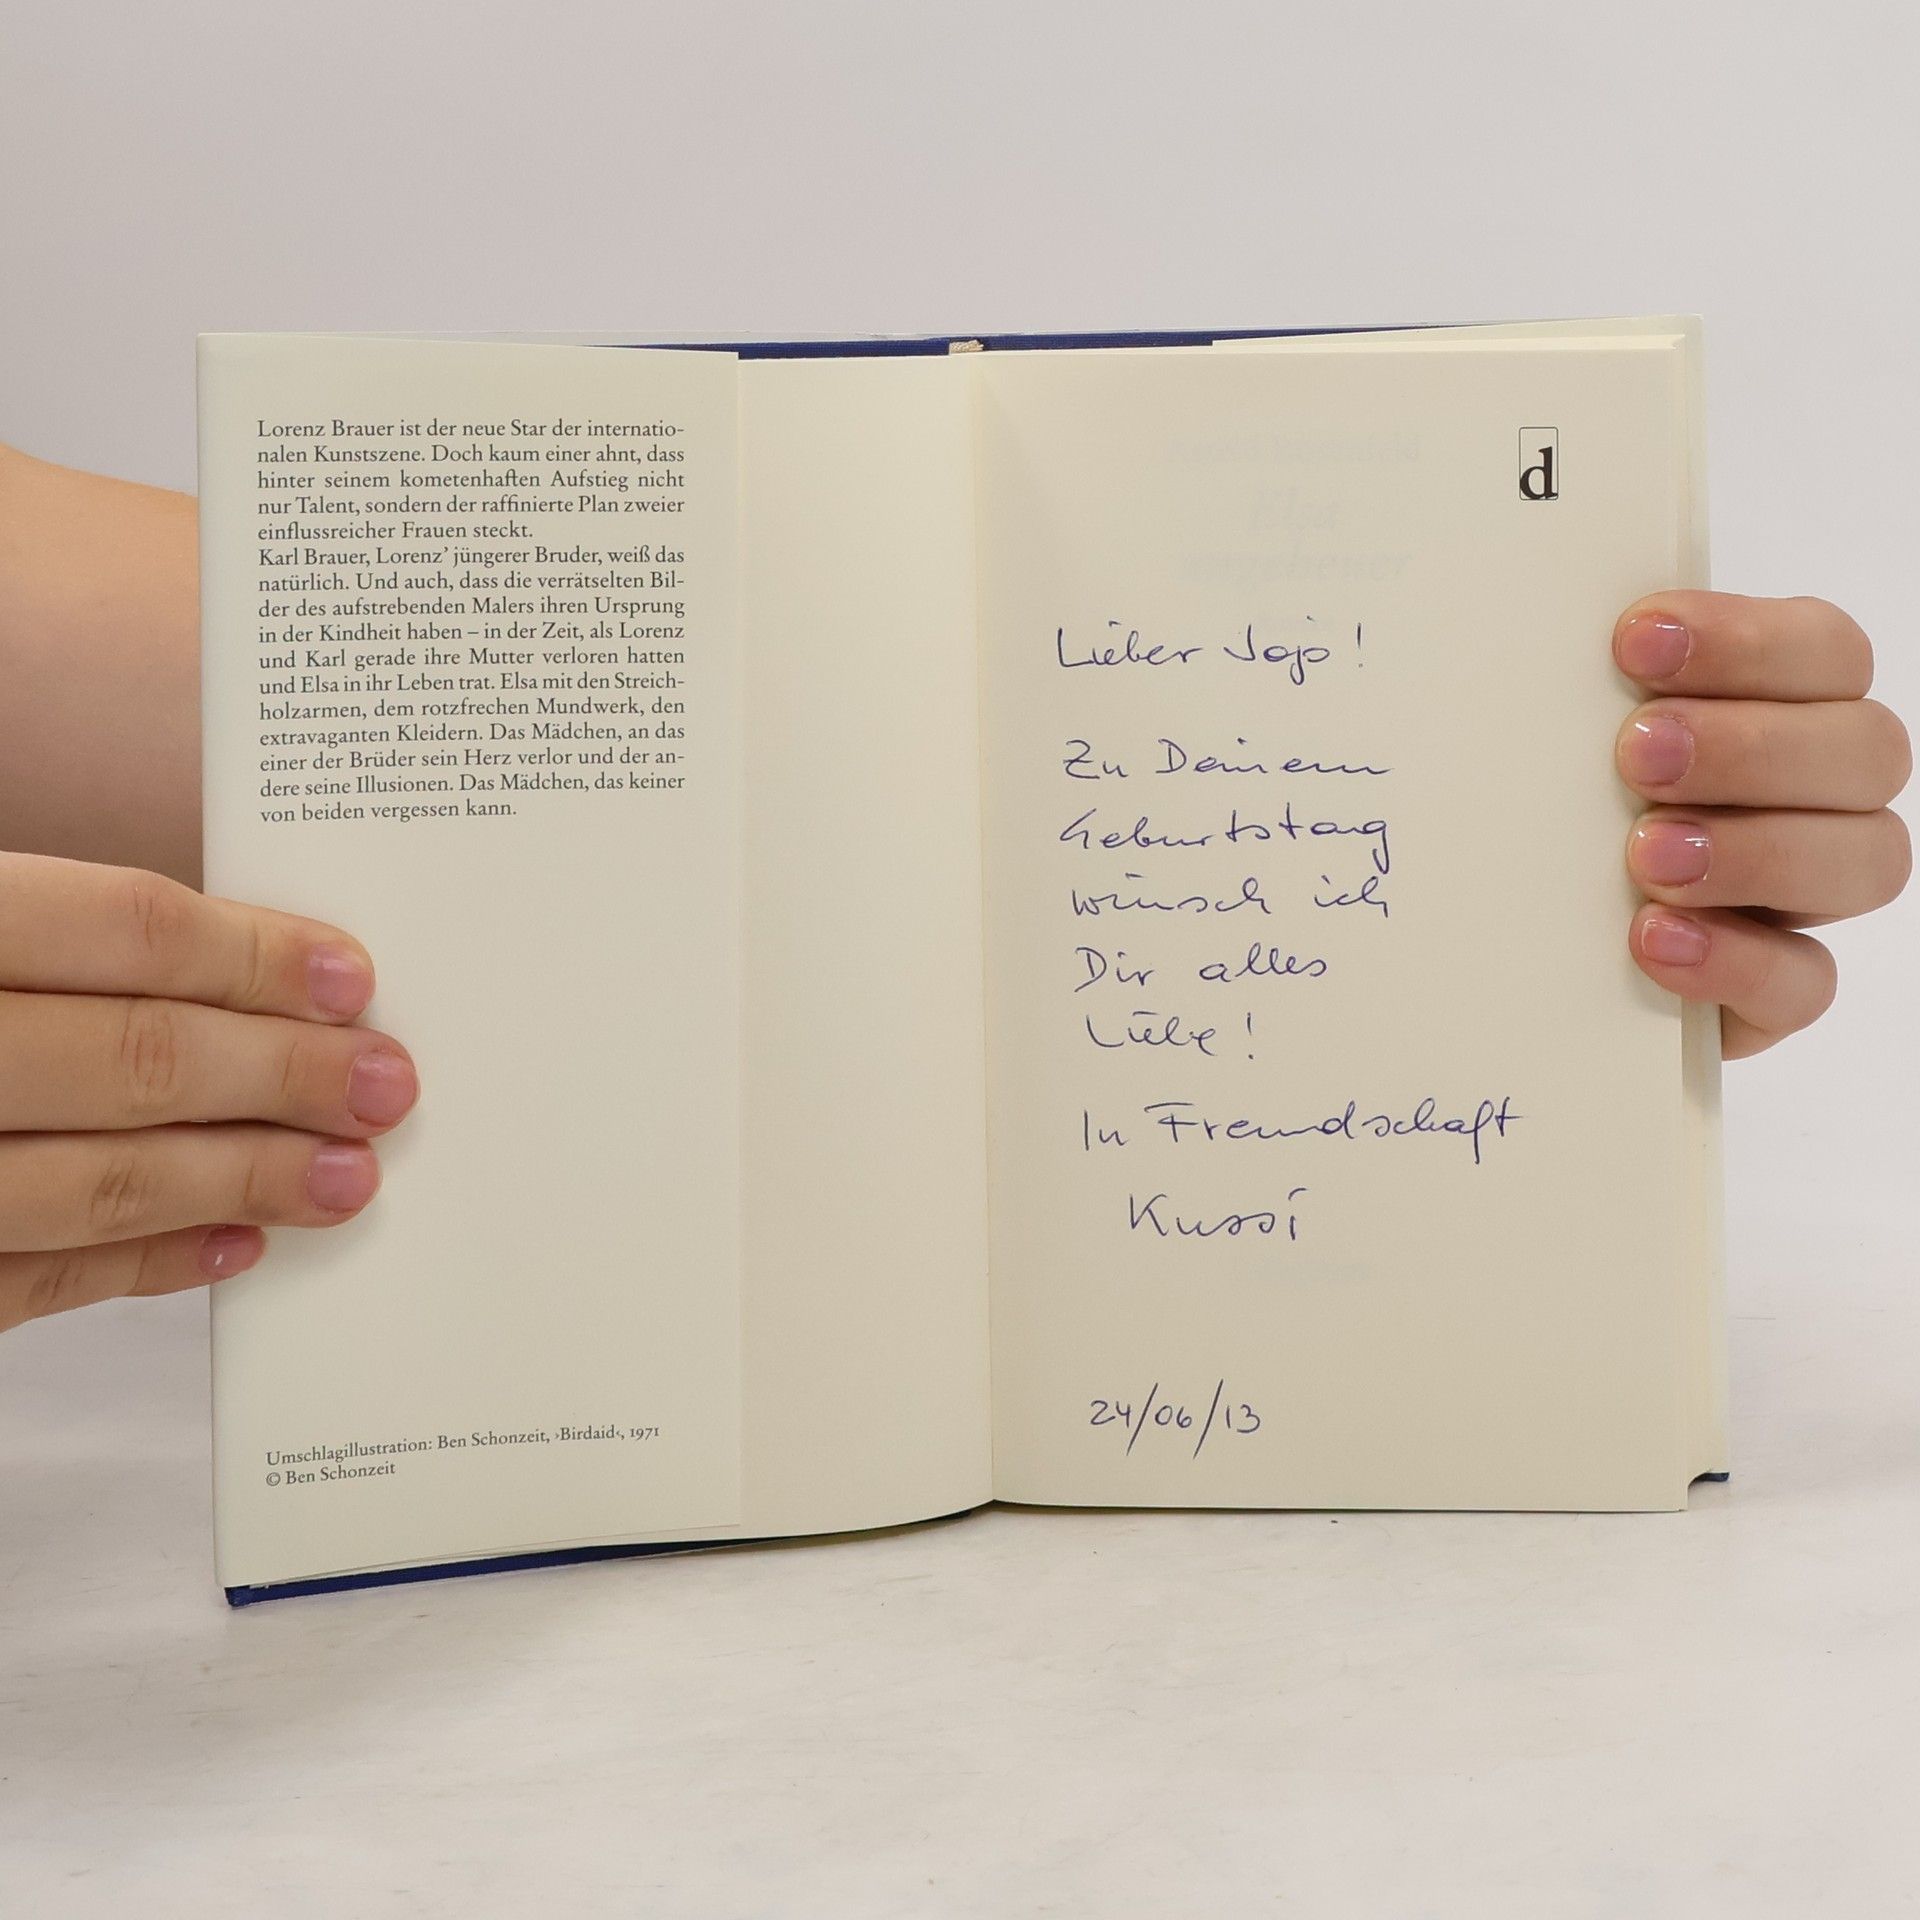 Lorenz Brauer ist der neue Star der internatio-
nalen Kunstszene. Doch kaum einer ahnt, dass
hinter seinem kometenhaften Aufstieg nicht
nur Talent, sondern der raffinierte Plan zweier
einflussreicher Frauen steckt.
Karl Brauer, Lorenz’ jüngerer Bruder, weiß das
natürlich. Und auch, dass die verrätselten Bil-
der des aufstrebenden Malers ihren Ursprung
in der Kindheit haben – in der Zeit, als Lorenz
und Karl gerade ihre Mutter verloren hatten
und Elsa in ihr Leben trat. Elsa mit den Streich-
holzarmen, dem rotzfrechen Mundwerk, den
extravaganten Kleidern. Das Mädchen, an das
einer der Brüder sein Herz verlor und der an-
dere seine Illusionen. Das Mädchen, das keiner
von beiden vergessen kann.
Umschlagillustration: Ben Schonzeit, ›Birdaid‹, 1971
© Ben Schonzeit
d
Lieber Jojo!
Zu Deinem
Geburtstag
wünsch ich
Dir alles
Liebe!
In Freundschaft
Kussi
24/06/13